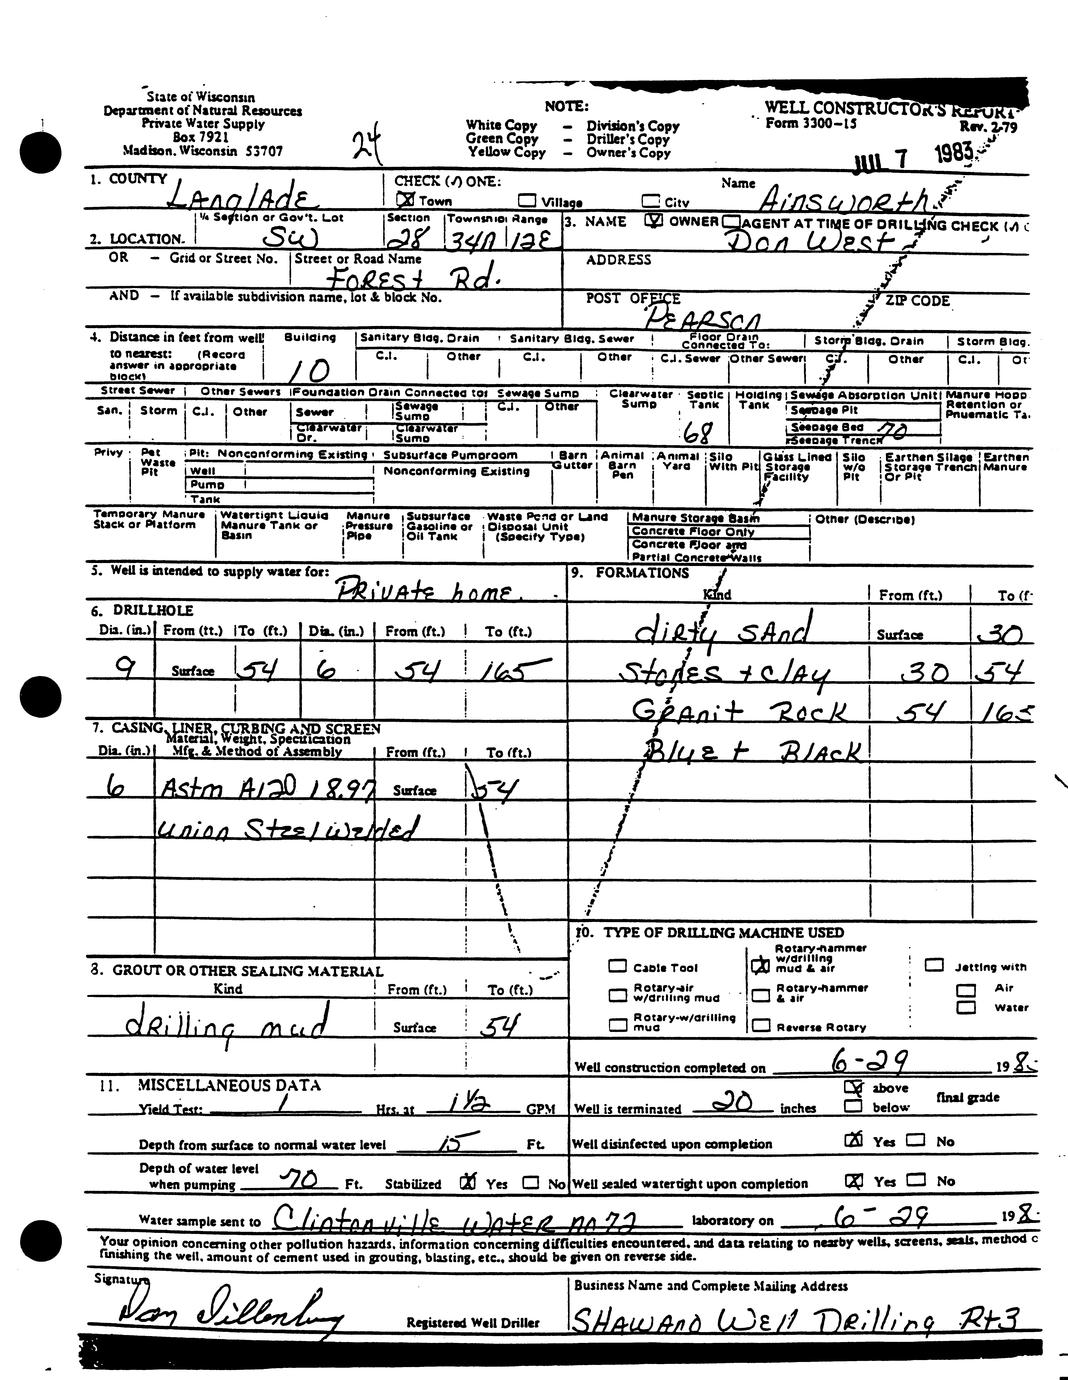 State of Wisconsin
Department of Natural Resources
Private Water Supply
Box 7921
Madison, Wisconsin 53707
24
NOTE:
White Copy – Division's Copy
Green Copy – Driller's Copy
Yellow Copy – Owner's Copy
WELL CONSTRUCTOR'S REPORT
Form 3300-15 Rev. 2-79
JUL 7 1983
1. COUNTY LANGLADE CHECK (✓) ONE: Town Village City Name AINSWORTH
2. LOCATION. ¼ Section or Gov't. Lot SW Section 28 Township 34N Range 12E
3. NAME OWNER AGENT AT TIME OF DRILLING CHECK (✓)
Don West
OR – Grid or Street No. Street or Road Name FOREST Rd.
ADDRESS
AND – If available subdivision name, lot & block No.
POST OFFICE PEARSON ZIP CODE
4. Distance in feet from well to nearest: (Record answer in appropriate block)
Building 10
Sanitary Bldg. Drain C.I. Other
Sanitary Bldg. Sewer C.I. Other
Floor Drain Connected To: C.I. Sewer Other Sewer
Storm Bldg. Drain C.I. Other
Storm Bldg. C.I.
Street Sewer San. Storm
Other Sewers C.I. Other
Foundation Drain Connected to: Sewer Clearwater Dr. Sewage Sump Clearwater Sump
Sewage Sump C.I. Other
Clearwater Sump
Septic Tank 68
Holding Tank
Sewage Absorption Unit Seepage Pit Seepage Bed 70 Seepage Trench
Manure Hopp Retention or Pnuematic Ta.
Privy
Pet Waste Pit
Pit: Nonconforming Existing Well Pump Tank
Subsurface Pumproom Nonconforming Existing
Barn Gutter
Animal Barn Pen
Animal Yard
Silo With Pit
Glass Lined Storage Facility
Silo w/o Pit
Earthen Silage Storage Trench Or Pit
Earthen Manure
Temporary Manure Stack or Platform
Watertight Liquid Manure Tank or Basin
Manure Pressure Pipe
Subsurface Gasoline or Oil Tank
Waste Pond or Land Disposal Unit (Specify Type)
Manure Storage Basin
Concrete Floor Only
Concrete Floor and Partial Concrete Walls
Other (Describe)
5. Well is intended to supply water for: Private home.
6. DRILLHOLE
Dia. (in.) From (ft.) To (ft.) Dia. (in.) From (ft.) To (ft.)
9 Surface 54 6 54 165
7. CASING, LINER, CURBING AND SCREEN
Material, Weight, Specification
Dia. (in.) Mfg. & Method of Assembly From (ft.) To (ft.)
6 Astm A120 18.97 Surface 54
union Steel welded
8. GROUT OR OTHER SEALING MATERIAL
Kind From (ft.) To (ft.)
drilling mud Surface 54
9. FORMATIONS
Kind From (ft.) To (f
dirty SAnd Surface 30
Stones + ClAy 30 54
GRAnit Rock 54 165
Blue + BlAck
10. TYPE OF DRILLING MACHINE USED
Cable Tool
Rotary-air w/drilling mud
Rotary-w/drilling mud
Rotary-hammer w/drilling mud & air
Rotary-hammer & air
Reverse Rotary
Jetting with
Air
Water
Well construction completed on 6-29 198
11. MISCELLANEOUS DATA
Yield Test: 1 Hrs. at 1½ GPM
Well is terminated 20 inches above below final grade
Depth from surface to normal water level 15 Ft.
Well disinfected upon completion Yes No
Depth of water level when pumping 70 Ft. Stabilized Yes No
Well sealed watertight upon completion Yes No
Water sample sent to Clintonville WATER no 72 laboratory on 6-29 198
Your opinion concerning other pollution hazards, information concerning difficulties encountered, and data relating to nearby wells, screens, seals, method
finishing the well, amount of cement used in grouting, blasting, etc., should be given on reverse side.
Signature Registered Well Driller
Business Name and Complete Mailing Address
SHAWANO Well Drilling Rt 3